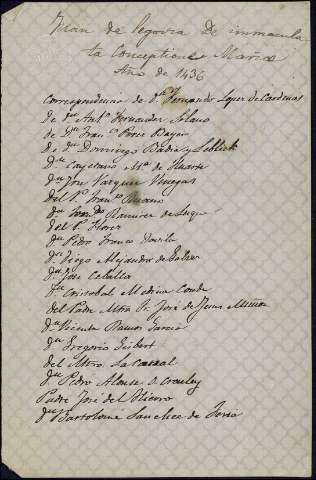 Juan de Segovia De immacula
ta Conceptione Mariæ
Año de 1436
Correspondencia de Dn. Fernando Lopez de Cardenas
de Dn. Antº Fernandez Solano
de Dn. Franco Perez Bayer
de Dn. Domingo Badia y Leblich
Dn. Cayetano Mª de Huarte
Dn. Jose Vazquez Venegas
del P. Franco
Dn. Ramirez de Luque
del P. Florez
Dn. Pedro Franco Davila
Dn. Diego Alejandro de Galvez
Dn. Jose Ceballos
Dn. Cristobal Medina Conde
del Padre Mtro Fr. José de Jesus Muñoz
Dn. Vicente Ramos Garcia
Dn. Gregorio Seibert
del Mtro. La Canal
Dn. Pedro Alonso O Crouley
Padre José del Hierro
Dn. Bartolomé Sanchez de Feria